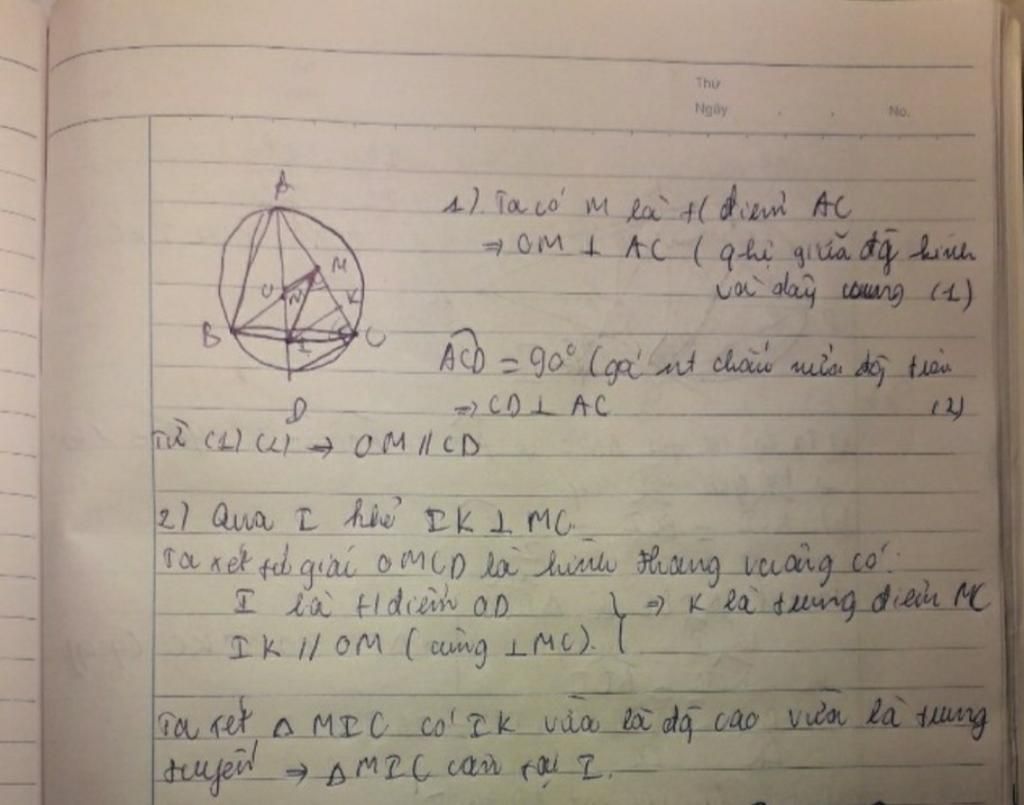 Thứ
Ngày . . No.
A
M
O N K
B I C
D
1) Ta có M là tđ điểm AC
⇒ OM ⊥ AC ( qhệ giữa đg kính
và dây cung (1)
ACD = 90° (góc nt chắn nửa đg tròn
⇒ CD ⊥ AC (2)
Từ (1) (2) ⇒ OM // CD
2) Qua I kẻ IK ⊥ MC
Ta xét tứ giác OMCD là hình thang vuông có:
I là tđ điểm OD } ⇒ K là trung điểm MC
IK // OM ( cùng ⊥ MC).
Ta xét Δ MIC có IK vừa là đg cao vừa là trung
tuyến ⇒ Δ MIC cân tại I.